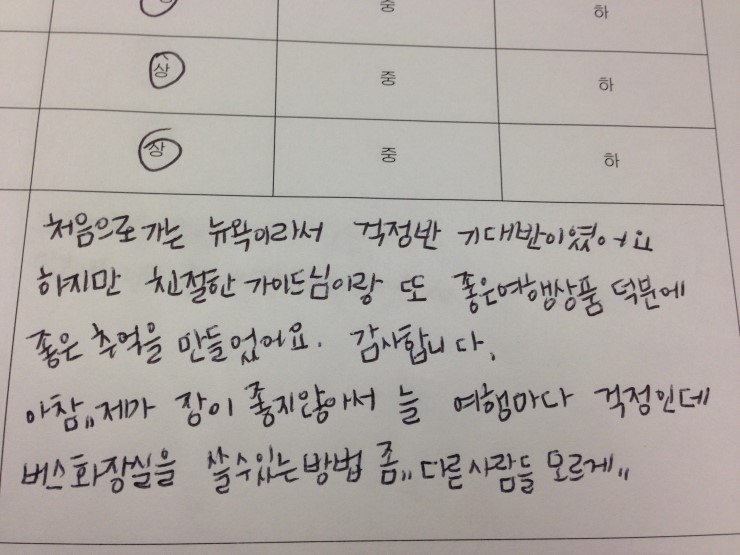 중 하
상 중 하
상 중 하
처음으로 가는 뉴욕이라서 걱정반 기대반이였어요
하지만 친절한 가이드님이랑 또 좋은여행상품 덕분에
좋은 추억을 만들었어요. 감사합니다.
아참,, 제가 장이 좋지않아서 늘 여행마다 걱정인데
버스화장실을 쓸수있는방법 좀,, 다른사람들 모르게,,